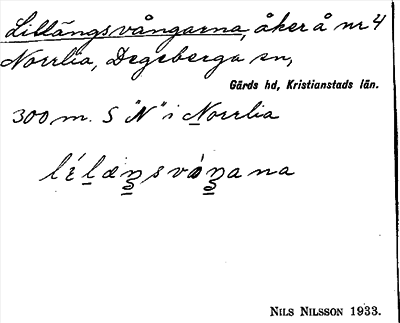 Lillängsvångarna, åker å nr 4
Norrlia, Degeberga sn,
Gärds hd, Kristianstads län.
300 m. S "N" i Norrlia
lílæŋsvòŋana
NILS NILSSON 1933.